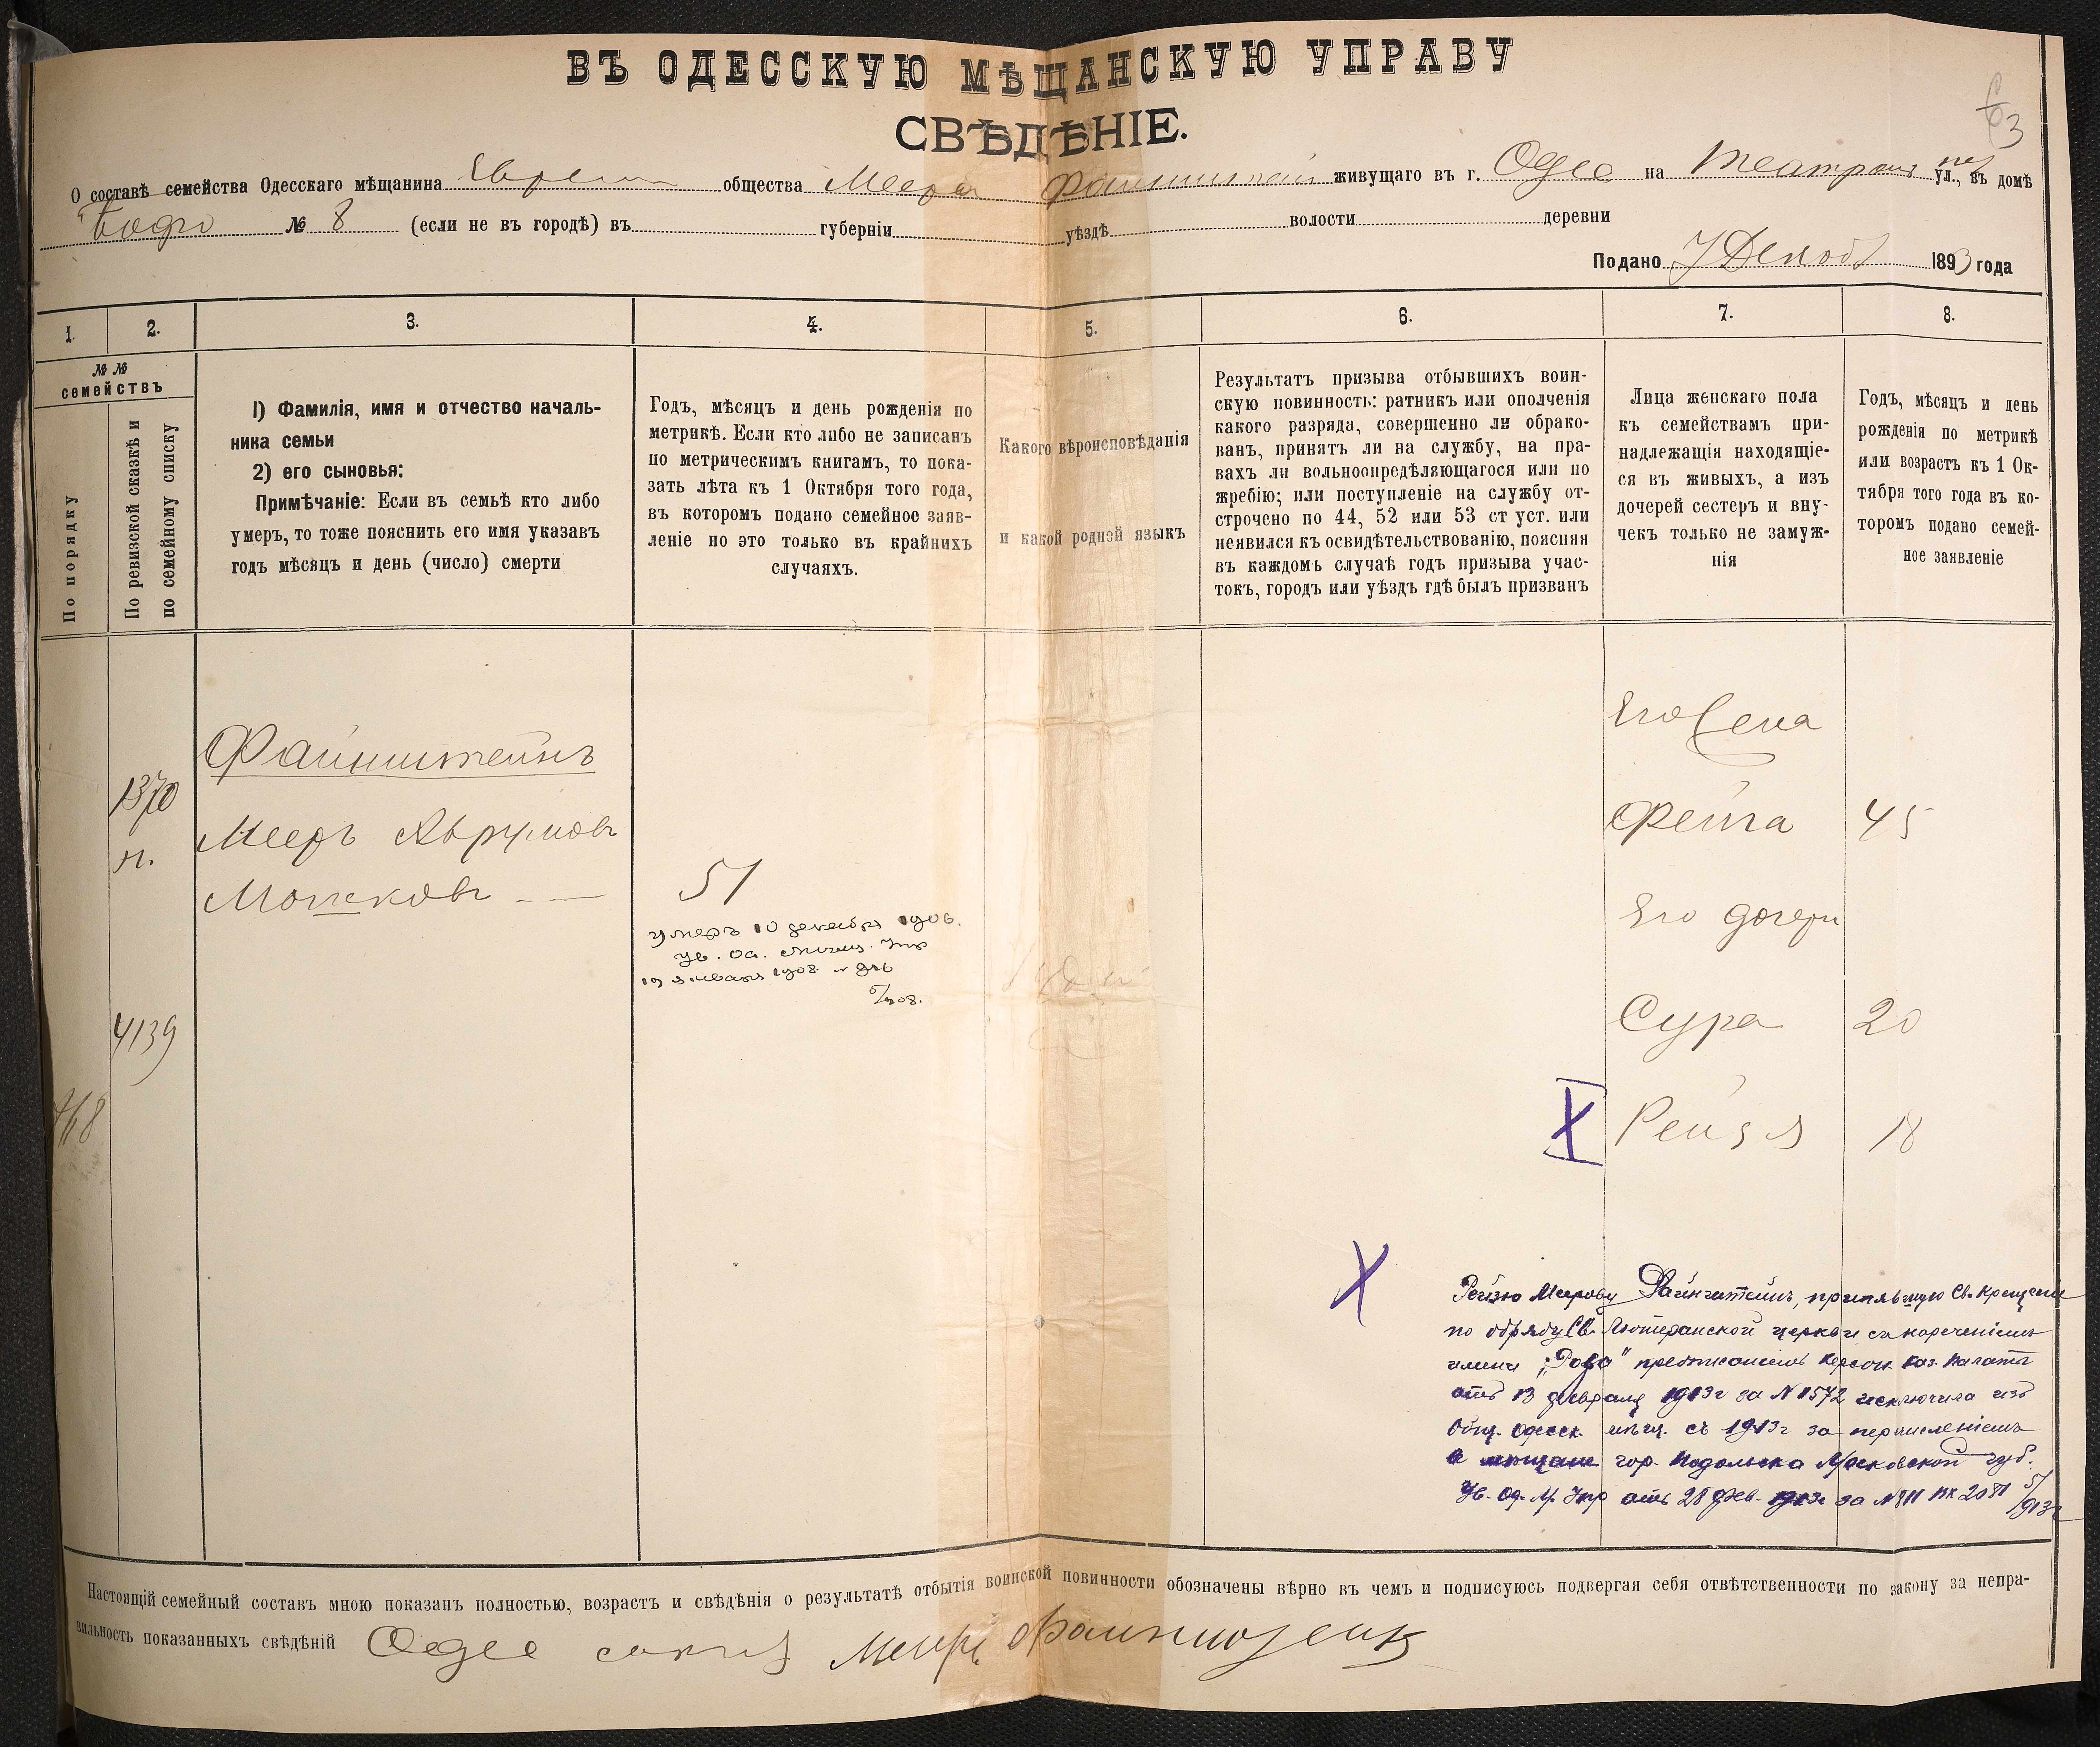 ВЪ ОДЕССКУЮ МѢЩАНСКУЮ УПРАВУ
СВѢДѢНІЕ.
63
О составѣ семейства Одесскаго мѣщанина Еврей общества Меера Файнштейн живущаго въ г. Одес на Театрал пер ул., въ домѣ
№ 8 (если не въ городѣ) въ губерніи уѣздѣ волости деревни
Подано 7 Декаб 1893 года
1. 2. 3. 4. 5. 6. 7. 8.
№ № семействъ
По порядку
По ревизской сказкѣ и
по семейному списку
1) Фамилія, имя и отчество началь-
ника семьи
2) его сыновья:
Примѣчаніе: Если въ семьѣ кто либо
умеръ, то тоже пояснить его имя указавъ
годъ мѣсяцъ и день (число) смерти
Годъ, мѣсяцъ и день рожденія по
метрикѣ. Если кто либо не записанъ
по метрическимъ книгамъ, то пока-
зать лѣта къ 1 Октября того года,
въ которомъ подано семейное заяв-
леніе но это только въ крайнихъ
случаяхъ.
Какого вѣроисповѣданія
и какой родной языкъ
Результатъ призыва отбывшихъ воин-
скую повинность: ратникъ или ополченія
какого разряда, совершенно ли обрако-
ванъ, принятъ ли на службу, на пра-
вахъ ли вольноопредѣляющагося или по
жребію; или поступленіе на службу от-
строчено по 44, 52 или 53 ст уст. или
неявился къ освидѣтельствованію, поясняя
въ каждомъ случаѣ годъ призыва учас-
токъ, городъ или уѣздъ гдѣ былъ призванъ
Лица женскаго пола
къ семействамъ при-
надлежащія находящіе-
ся въ живыхъ, а изъ
дочерей сестеръ и вну-
чекъ только не замуж-
нія
Годъ, мѣсяцъ и день
рожденія по метрикѣ
или возрастъ къ 1 Ок-
тября того года въ ко-
торомъ подано семей-
ное заявленіе
Его жена
Файнштейнъ
1370
н.
Фейга 45
Мееръ Аврумовъ
Мошковъ
51
Его дочери
умеръ 10 декабря 1906.
ув. Од. мѣщ. Упр
19 января 1908. №
5/908.
4139
Сура 20
468
Рейзя 18
Рейзю Меерову Файнштейнъ, принявшую Св. Крещеніе
по обряду Св. Лютеранской церкви съ нареченіемъ
имени „Роза" предписаніемъ Херсон. каз. палаты
отъ 13 февраля 1913г за № 1572 исключена изъ
Общ. одесск мѣщ. съ 1913г за перечисленіемъ
в мѣщане гор. Подольска Московской губ.
Ув. Од. М. Упр отъ 28 фев. 1913г за № 811 вх 2081 5/913г
Настоящій семейный составъ мною показанъ полностью, возрастъ и свѣдѣнія о результатѣ отбытія воинской повинности обозначены вѣрно въ чемъ и подписуюсь подвергая себя отвѣтственности по закону за непра-
вильность показанныхъ свѣдѣній Одес Меиръ Фаинштеин